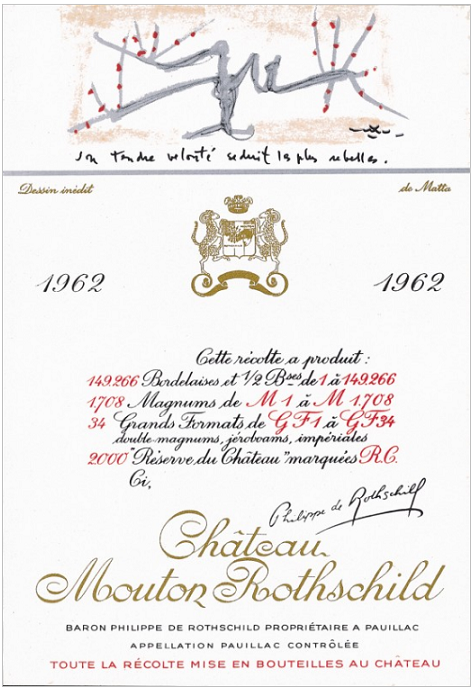 Son tendre velouté séduit les plus rebelles.
Dessin inédit
de Matta
1962
1962
Cette récolte a produit :
149.266 Bordelaises et 1/2 Bses de 1 à 149.266
1708 Magnums de M 1 à M 1.708
34 Grands Formats de GF1 à GF34
double magnums, jéroboams, impériales
2000 "Réserve du Château" marquées R.C.
Ci,
Philippe de Rothschild
Château
Mouton Rothschild
BARON PHILIPPE DE ROTHSCHILD PROPRIÉTAIRE A PAUILLAC
APPELLATION PAUILLAC CONTRÔLÉE
TOUTE LA RÉCOLTE MISE EN BOUTEILLES AU CHÂTEAU